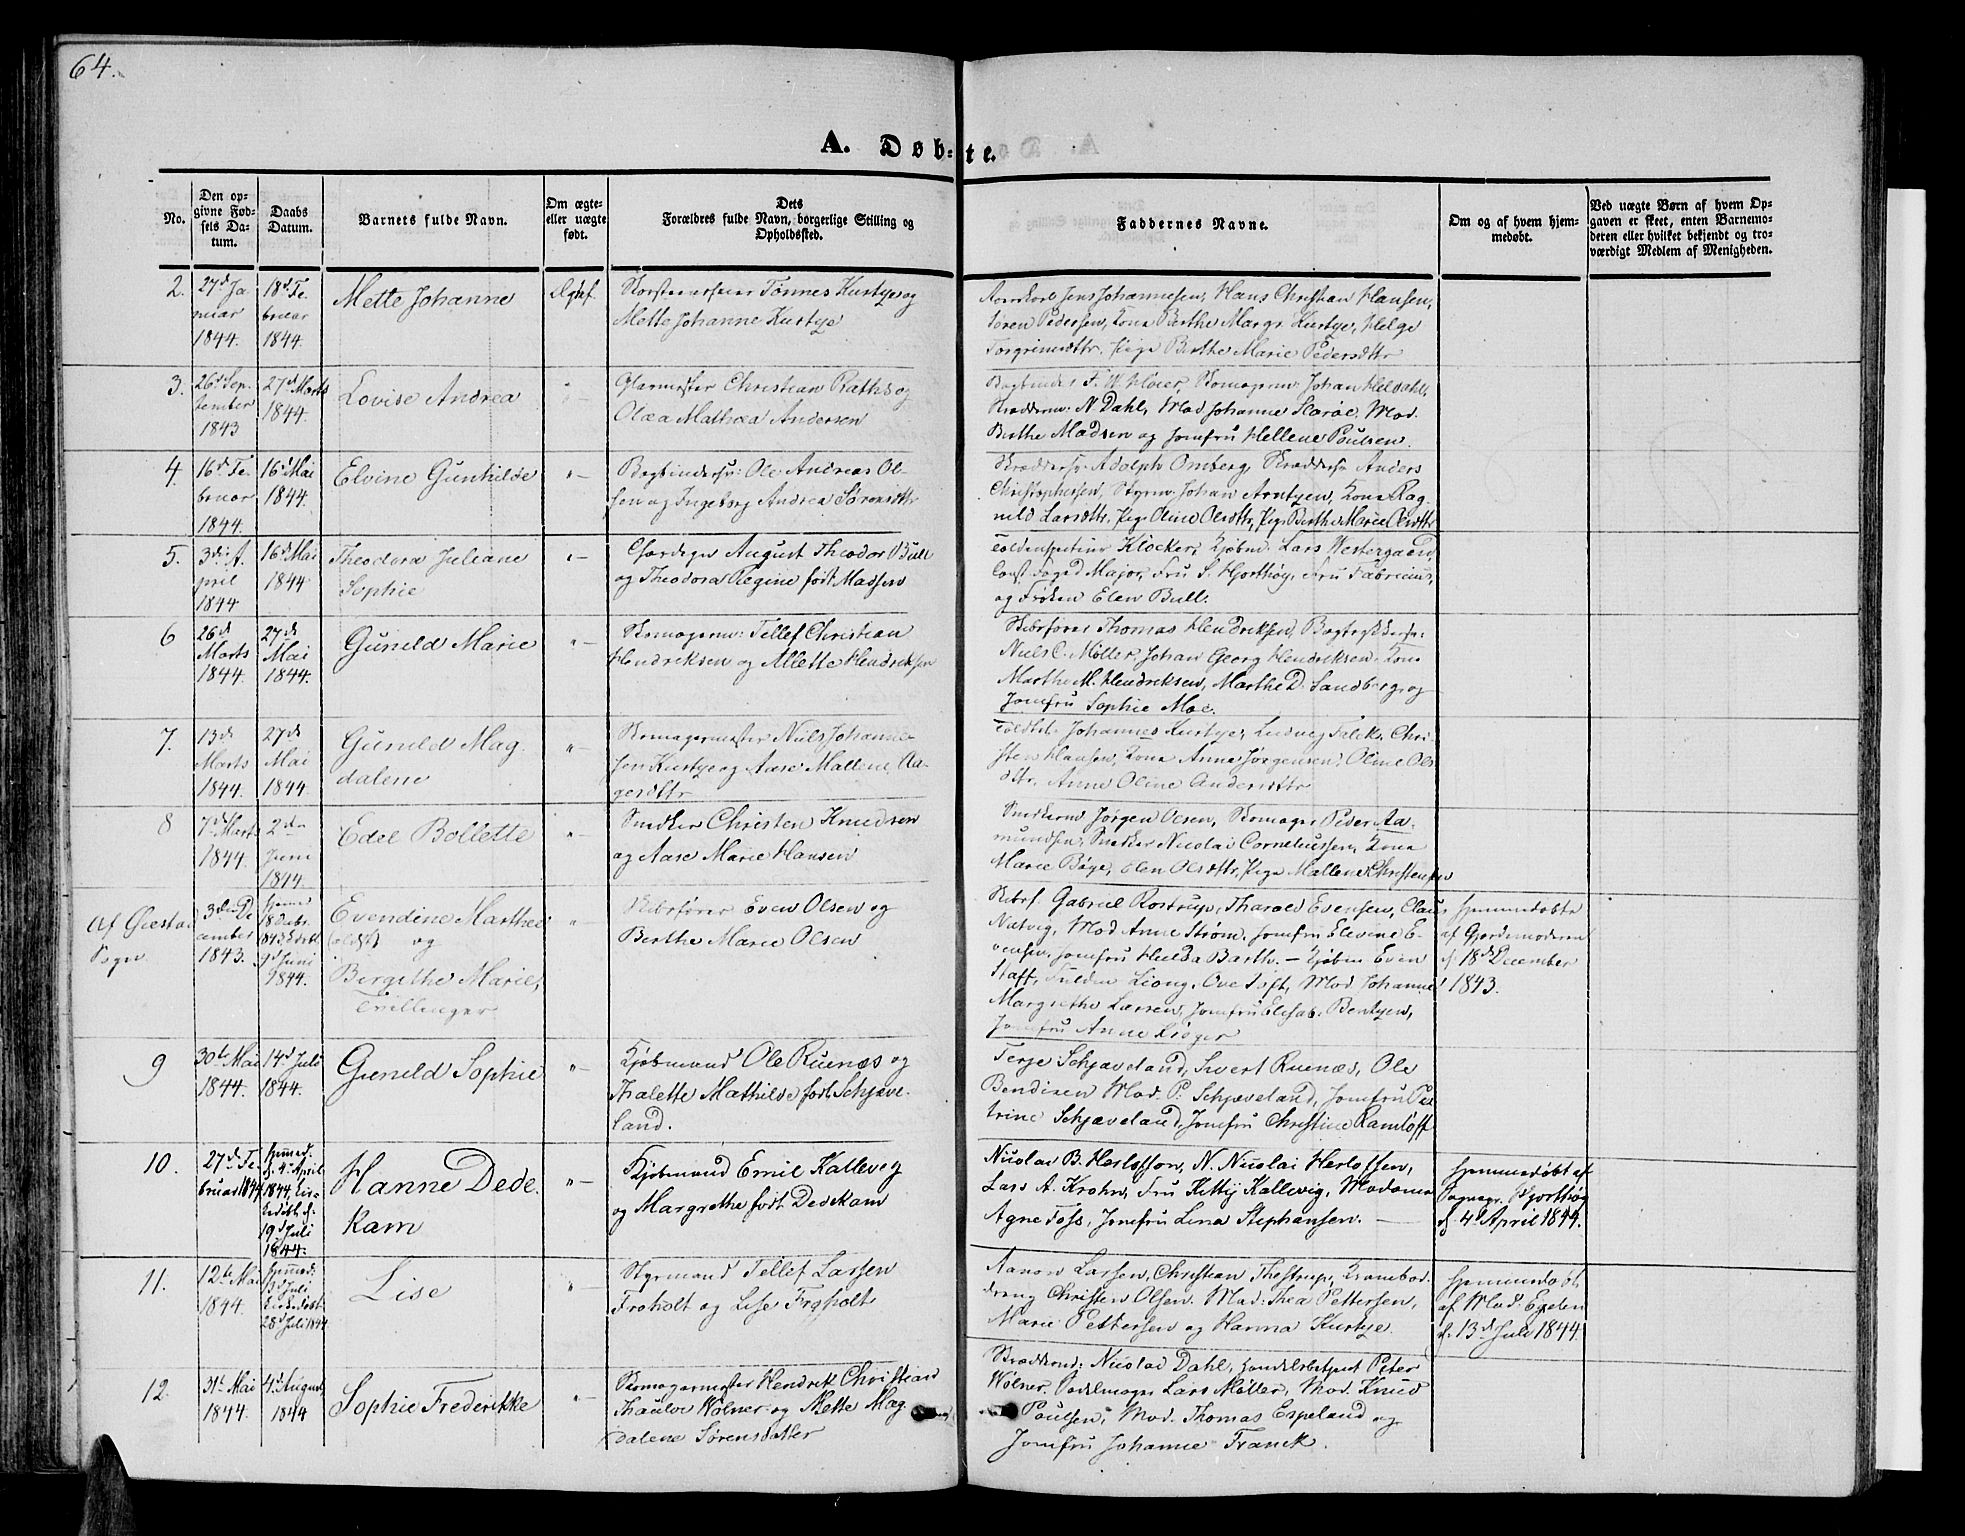 64.
A. Døb-te.
No.
Den op-
givne Fød-
sels Da-
tum.
Daabs
Datum.
Barnets fulde Navn.
Om ægte
eller uægte
født.
Dets
Forældres fulde Navn, borgerlige Stilling og
Opholdssted.
Faddernes Navne.
Om og af hvem hjem-
medøbt.
Ved uægte Børn af hvem Op-
gaven er skeet, enten Barnemo-
deren eller hvilket bekjendt og tro-
værdigt Medlem af Menigheden.
2.
27d Ja-
nuar
1844.
18d Fe
bruar
1844.
Mette Johanne
Ægtef.
Tönnes Kustye og
Mette Johanne Kustye
Jens Johannesen, Hans Christian Hansen,
Sören Pedersen, Kona Berthe Margr. Kustye, Helge
Torgrimsdttr, Pige Berthe Marie Pedersdttr
3.
26d Sep-
tember
1843
27d Marts
1844.
Lovise Andrea
"—
Glarmester Christian Raths og
Olæa Mathæa Andersen
Bogbinder F. W. Høier, Skomagerm: Johan Heldahl,
Skrædderm: N. Dahl, Mad Johanne Skaröe, Mad.
Berthe Madsen og Jomfru Hellene Poulsen.
4.
16d Fe-
bruar
1844.
16d Mai
1844.
Elvine Gunhilde
"—
Bogbindersv: Ole Andreas Ol-
sen og Ingeborg Andrea Sörensdttr
Skræddersv Adolph Omberg, Skræddersv Anders
Christophersen, Styrm. Johan Arntzen, Kona Rag-
nild Larsdttr, Pige Oline Olsdttr, Pige Berthe Marie Olsdttr
5.
3di A-
pril
1844
16d Mai
1844.
Theodora Juliane
Sophie
"—
August Theodor Bull
og Theodora Regine født Massen
Toldinspecteur Klöcker, Kjöbm. Lars Westergaard,
Const. Foged Major, Fru S. Hjorthöy, Fru Fabricius,
og Fröken Elen Bull.
6
26d
Marts
1844.
27d
Mai
1844.
Guneld Marie
"—
Skomagerm: Tellef Christian
Hendriksen og Allette Hendriksen
Skibsförer Thomas Hendriksen, Bogtrykkersv:
Niels C. Möller, Johan Georg Hendriksen, Kona
Marthe M. Hendriksen, Marthe D. Sandberg og
Jomfru Sophie Moe.
7.
13d
Marts
1844.
27d
Mai
1844.
Guneld Mag-
dalene
"—
Skomagermester Niels Johanne-
sen Kustye og Aase Mallene Aa-
gesdttr
Johannes Kustye, Ludvig Falck, Chri-
sten Hansen, Kona Anna Jörgensen, Oline Ols
dttr, Anne Oline Andersdttr
8
7d Marts
1844.
2den
Juni
1844
Edel Bollette
"—
Snedker Christen Knudsen
og Aase Marie Hansen
Snedkerm Jörgen Olsen, Skomager Peder Aa-
mundsen, Snedker Nicolai Corneliussen, Kona
Marie Böge, Elen Olsdttr, Pige Mallene Christensen
Af Øiestad
Sogn
3die De
cember
1843.
hjemme
18 Decbr.
1843
9d Juni
1844.
Evendine Marthea
(eldst) og
Bergithe Marie,
Tvillinger
"
Skibsförer Even Olsen og
Berthe Marie Olsen
Skibsf. Gabriel Rostrup, Tharald Evensen, Claus
Natvig, Mad Anne Ström, Jomfru Elevine E-
vensen, Jomfru Hulda Barth. — Kjöbm Even
Staff, Fulden Liong, Ove Toft, Mad Johanne
Margrethe Larsen, Jomfru Elisab. Bentzen,
Jomfru Anne Kröger
hjemmedöbte
af Gjordemoderen
d. 18d December
1843.
9
30te Mai
1844.
14d Juli
1844.
Guneld Sophie
"—
Kjöbmand Ole Ruenæs og
Thalette Mathilde födt Schjæve-
land.
Terje Schjæveland, Sivert Ruenæs, Ole
Bendixen Mad. P. Schjæveland, Jomfru Pe-
trine Schjæveland, Jomfru Christine Ramlöff
10.
27d Fe-
bruar 1844
hjemmed.
d. 4d April
1844, Kir-
kedöbt d.
19d Juli
1844.
Hanne Dede-
kam
"—
Kjöbmand Emil Kallevig
og Margrethe födt Dedekam
Nicolai B. Herlofson, N. Nicolai Herlofsen,
Lars A. Krohn, Fru Kitty Kallevig, Madame
Agne Foss, Jomfru Lina Stephansen. —
hjemmedöbt af
Sognepr. Hjorthöy
d. 4d April 1844.
11.
12te Mai
1844.
hjemmed:
13d Juli
Kirkedöbt
28d Juli 1844
Lise
"
Styrmand Tellef Larsen
Froholt og Lise Froholt
Aanon Larsen, Christian Thestrup, Krambod-
dreng Christen Olsen. Mad: Thea Pettersen,
Marie Pettersen og Hanna Kustye
hjemmedöbt
af Mad. Egelen
d. 13d Juli 1844.
12.
31te Mai
1844.
4d August
1844
Sophie Frederikke
"—
Skomagermester Hendrik Christian
Thaulov Wölner og Mette Mag-
dalene Sörensdatter
Skrædderm: Nicolai Dahl, Handelsbetjent Peter
Wölner, Sadelmager Lars Möller, Mad. Knud
Poulsen, Mad. Thomas Espeland og
Jomfru Johanne Franck.